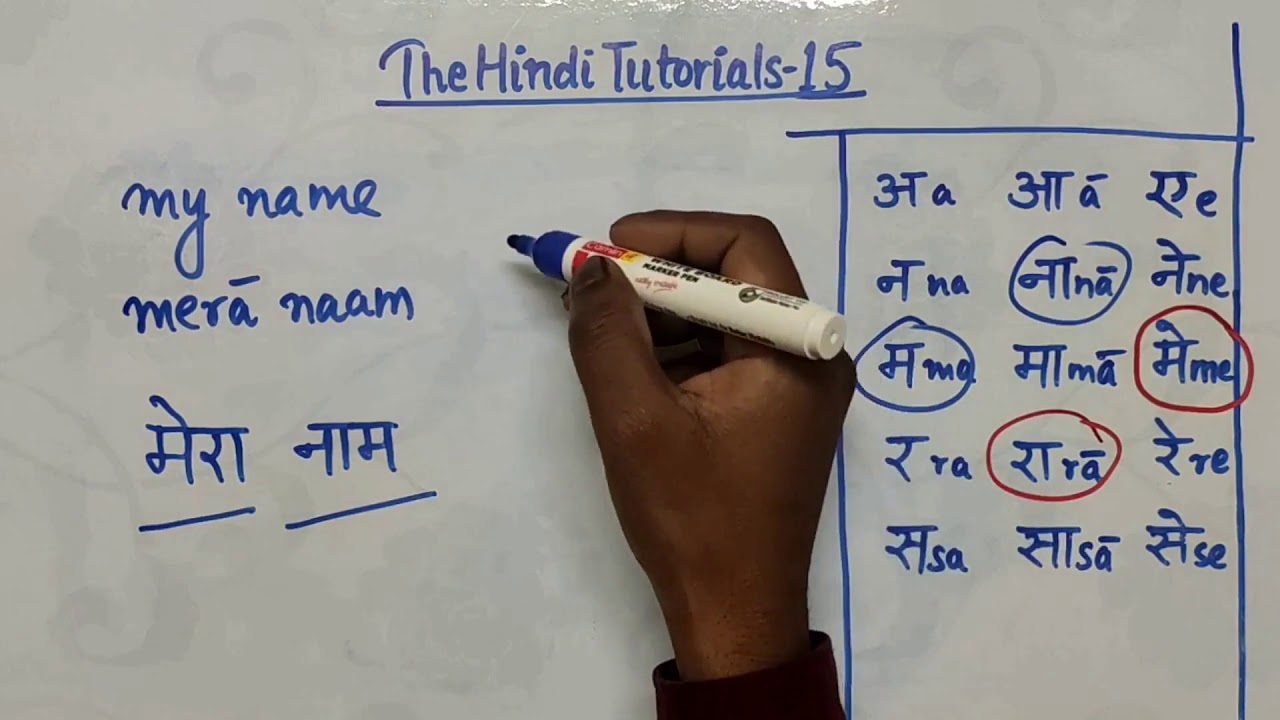 The Hindi Tutorials-15
my name
merā naam
मेरा नाम
अ a आ ā ए e
न na ना nā ने ne
म ma मा mā मे me
र ra रा rā रे re
स sa सा sā से se
WHITE BOARD
MARKER PEN